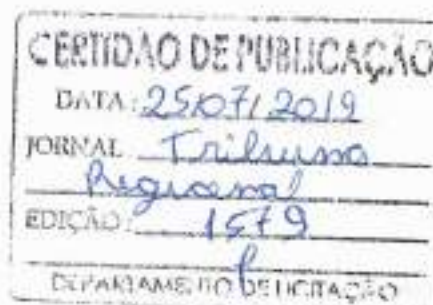 CERTIDÃO DE PUBLICAÇÃO
DATA: 25/07/2019
JORNAL Tribuna
Regional
EDIÇÃO: 1579
DEPARTAMENTO DE LICITAÇÃO